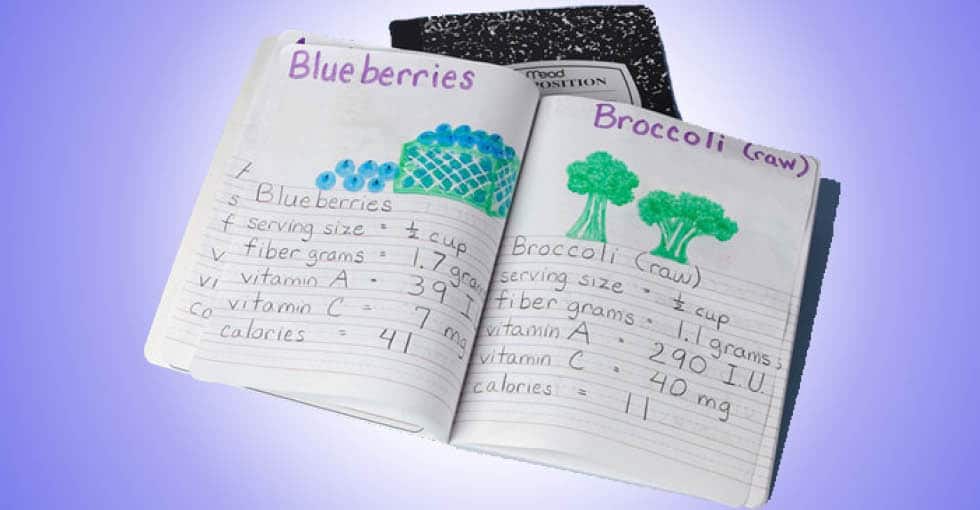 Mead
POSITION
Blueberries
s Blueberries
f serving size = ½ cup
v fiber grams = 1.7 gram
vi vitamin A = 39 I
co vitamin C = 7 mg
calories = 41
Broccoli (raw)
Broccoli (raw)
serving size = ½ cup
fiber grams = 1.1 grams
vitamin A = 290 I.U.
vitamin C = 40 mg
calories = 11